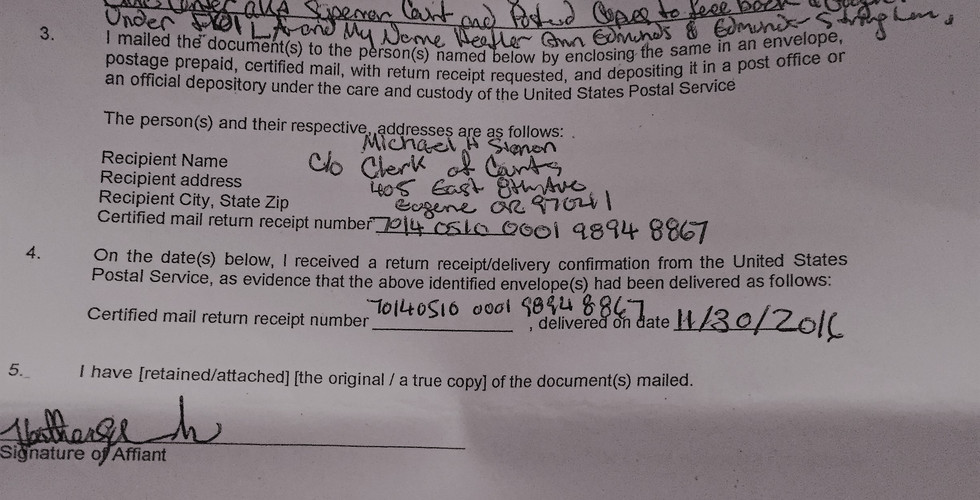 aka Superior Court and Posted Copies to face book
Under and My Name Heather Ann Edmunds &
3. I mailed the document(s) to the person(s) named below by enclosing the same in an envelope,
postage prepaid, certified mail, with return receipt requested, and depositing it in a post office or
an official depository under the care and custody of the United States Postal Service
The person(s) and their respective addresses are as follows:
Michael H Simon
Recipient Name c/o Clerk of Courts
Recipient address 405 East 8th Ave
Recipient City, State Zip Eugene OR 97041
Certified mail return receipt number 7014 0510 0001 9894 8867
4. On the date(s) below, I received a return receipt/delivery confirmation from the United States
Postal Service, as evidence that the above identified envelope(s) had been delivered as follows:
70140510 0001 9894 8867
Certified mail return receipt number , delivered on date 11/30/2016
5. I have [retained/attached] [the original / a true copy] of the document(s) mailed.
Signature of Affiant